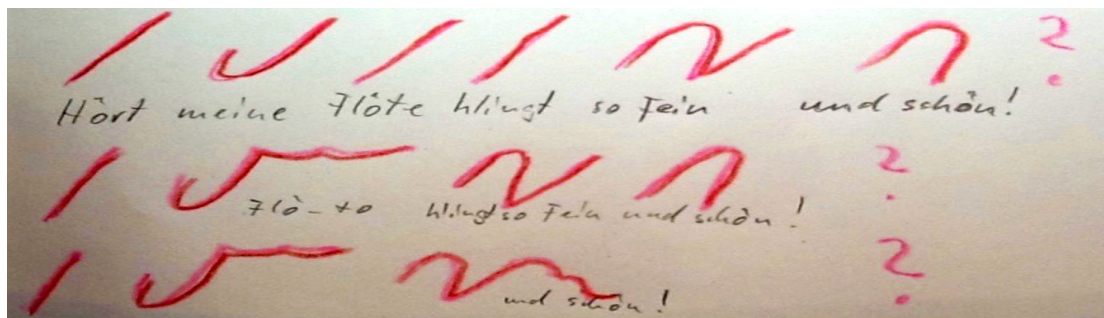 Hört meine Flöte klingt so fein und schön! ?
Flö-te klingt so fein und schön! ?
und schön! ?